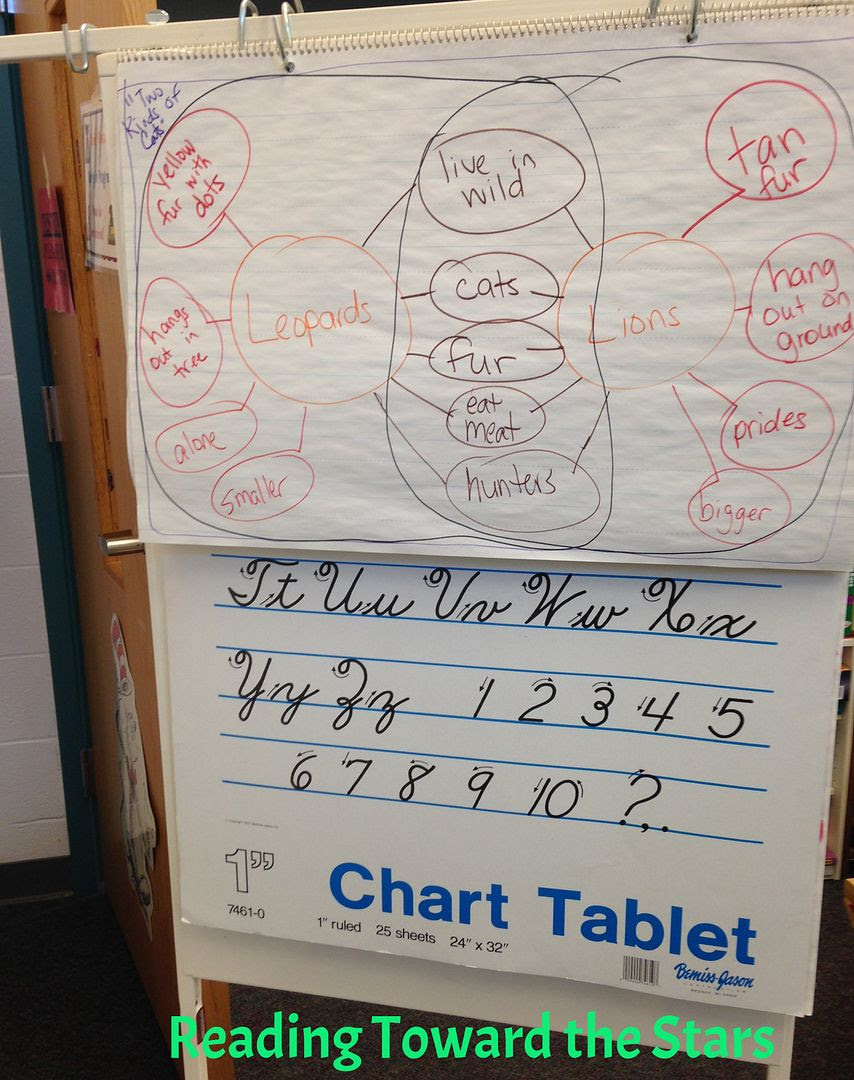 "Two
Kinds of
Cats"
yellow
fur with
dots
hangs
out in
tree
alone
smaller
Leopards
live in
wild
cats
fur
eat
meat
hunters
Lions
tan
fur
hang
out on
ground
prides
bigger
Tt Uu Vv Ww Xx
Yy Zz 1 2 3 4 5
6 7 8 9 10 ? , .
1"
7461-0
Chart Tablet
1" ruled 25 sheets 24" x 32"
Bemiss-Jason
Reading Toward the Stars